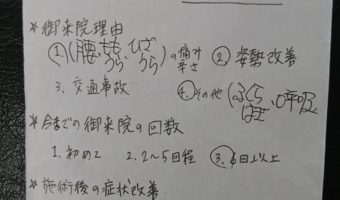 *御来院理由
①(腰、もも うら、ひざ うら)の痛み 辛さ ②姿勢改善
3、交通事故 ④その他(ふくら はぎ、呼吸)
*今までの御来院の回数
1、初めて 2、2~5回程 ③、6回以上
*施術後の症状改善